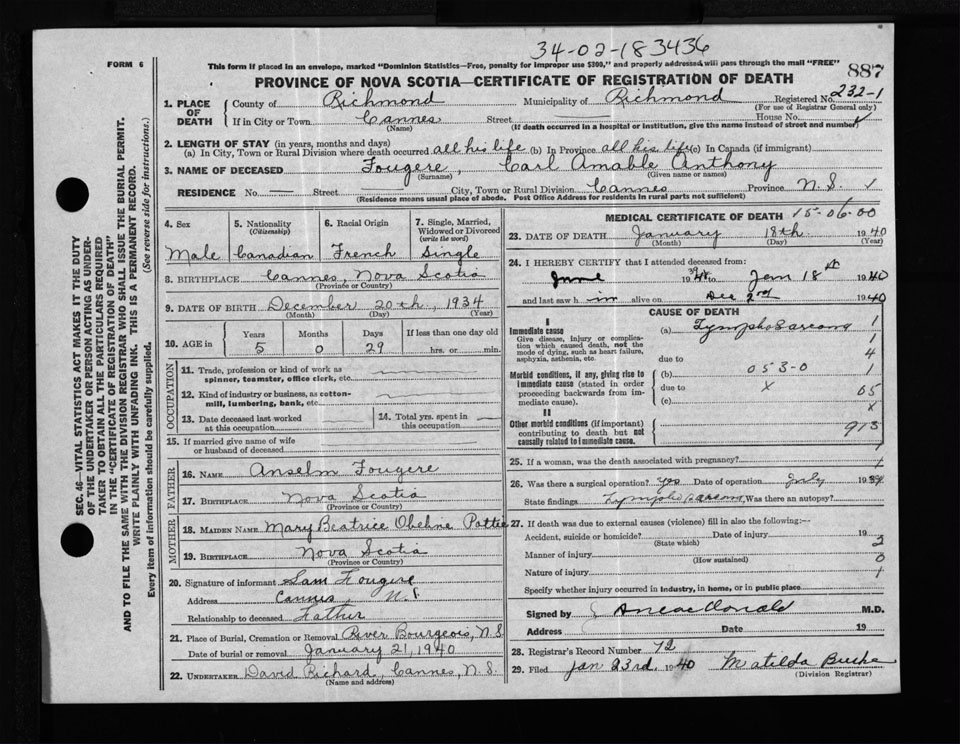 34-02-183436
FORM 6
This form if placed in an envelope, marked "Dominion Statistics—Free, penalty for improper use $300," and properly addressed, will pass through the mail "FREE"
887
PROVINCE OF NOVA SCOTIA—CERTIFICATE OF REGISTRATION OF DEATH
232-1
1. PLACE OF DEATH County of Richmond Municipality of Richmond Registered No.
(For use of Registrar General only)
If in City or Town Cannes Street House No.
(Name) (If death occurred in a hospital or institution, give the name instead of street and number)
2. LENGTH OF STAY (in years, months and days)
(a) In City, Town or Rural Division where death occurred all his life (b) In Province all his life (c) In Canada (if immigrant)
3. NAME OF DECEASED Fougere, Carl Amable Anthony
(Surname) (Given name or names)
RESIDENCE No. — Street City, Town or Rural Division Cannes Province N.S. /
(Residence means usual place of abode. Post Office Address for residents in rural parts not sufficient)
4. Sex 5. Nationality (Citizenship) 6. Racial Origin 7. Single, Married, Widowed or Divorced (write the word)
Male Canadian French Single
8. BIRTHPLACE Cannes, Nova Scotia
(Province or Country)
9. DATE OF BIRTH December 20th, 1934
(Month) (Day) (Year)
10. AGE in Years Months Days If less than one day old
5 0 29 hrs. or min.
OCCUPATION
11. Trade, profession or kind of work as spinner, teamster, office clerk, etc.
12. Kind of industry or business, as cotton-mill, lumbering, bank, etc.
13. Date deceased last worked at this occupation
14. Total yrs. spent in this occupation
15. If married give name of wife or husband of deceased
FATHER
16. NAME Anselm Fougere
17. BIRTHPLACE Nova Scotia
(Province or Country)
MOTHER
18. MAIDEN NAME Mary Beatrice Pottie
19. BIRTHPLACE Nova Scotia
(Province or Country)
20. Signature of informant Sam Fougere
Address Cannes N.S.
Relationship to deceased Father
21. Place of Burial, Cremation or Removal River Bourgeois, N.S.
Date of burial or removal January 21, 1940
22. UNDERTAKER David Richard, Cannes, N.S.
(Name and address)
MEDICAL CERTIFICATE OF DEATH 15-06-00
23. DATE OF DEATH January 18th 1940
(Month) (Day) (Year)
24. I HEREBY CERTIFY that I attended deceased from:
June 19 39 to Jan 18th 1940
and last saw h im alive on Dec 2nd 1940
CAUSE OF DEATH
I
Immediate cause (a) Lympho Sarcoma 1
Give disease, injury or complication which caused death, not the mode of dying, such as heart failure, asphyxia, asthenia, etc.
1
due to 4
Morbid conditions, if any, giving rise to immediate cause (stated in order proceeding backwards from immediate cause).
(b) 053-0 1
due to x 05
(c) x
II
Other morbid conditions (if important) contributing to death but not causally related to immediate cause.
913
25. If a woman, was the death associated with pregnancy? 1
26. Was there a surgical operation? Yes Date of operation July 1939
State findings Lympho sarcoma Was there an autopsy?
27. If death was due to external causes (violence) fill in also the following:—
Accident, suicide or homicide? Date of injury 19
(State which) 2
Manner of injury 0
(How sustained)
Nature of injury 1
Specify whether injury occurred in industry, in home, or in public place
Signed by MacDonald M.D.
Address Date 19
28. Registrar's Record Number 72
29. Filed Jan 23rd, 1940 Matilda Burke
(Division Registrar)
SEC. 46—VITAL STATISTICS ACT MAKES IT THE DUTY
OF THE UNDERTAKER OR PERSON ACTING AS UNDER-
TAKER TO OBTAIN ALL THE PARTICULARS REQUIRED
IN THE "CERTIFICATE OF REGISTRATION OF DEATH"
AND TO FILE THE SAME WITH THE DIVISION REGISTRAR WHO SHALL ISSUE THE BURIAL PERMIT.
WRITE PLAINLY WITH UNFADING INK. THIS IS A PERMANENT RECORD.
Every item of information should be carefully supplied. (See reverse side for instructions.)